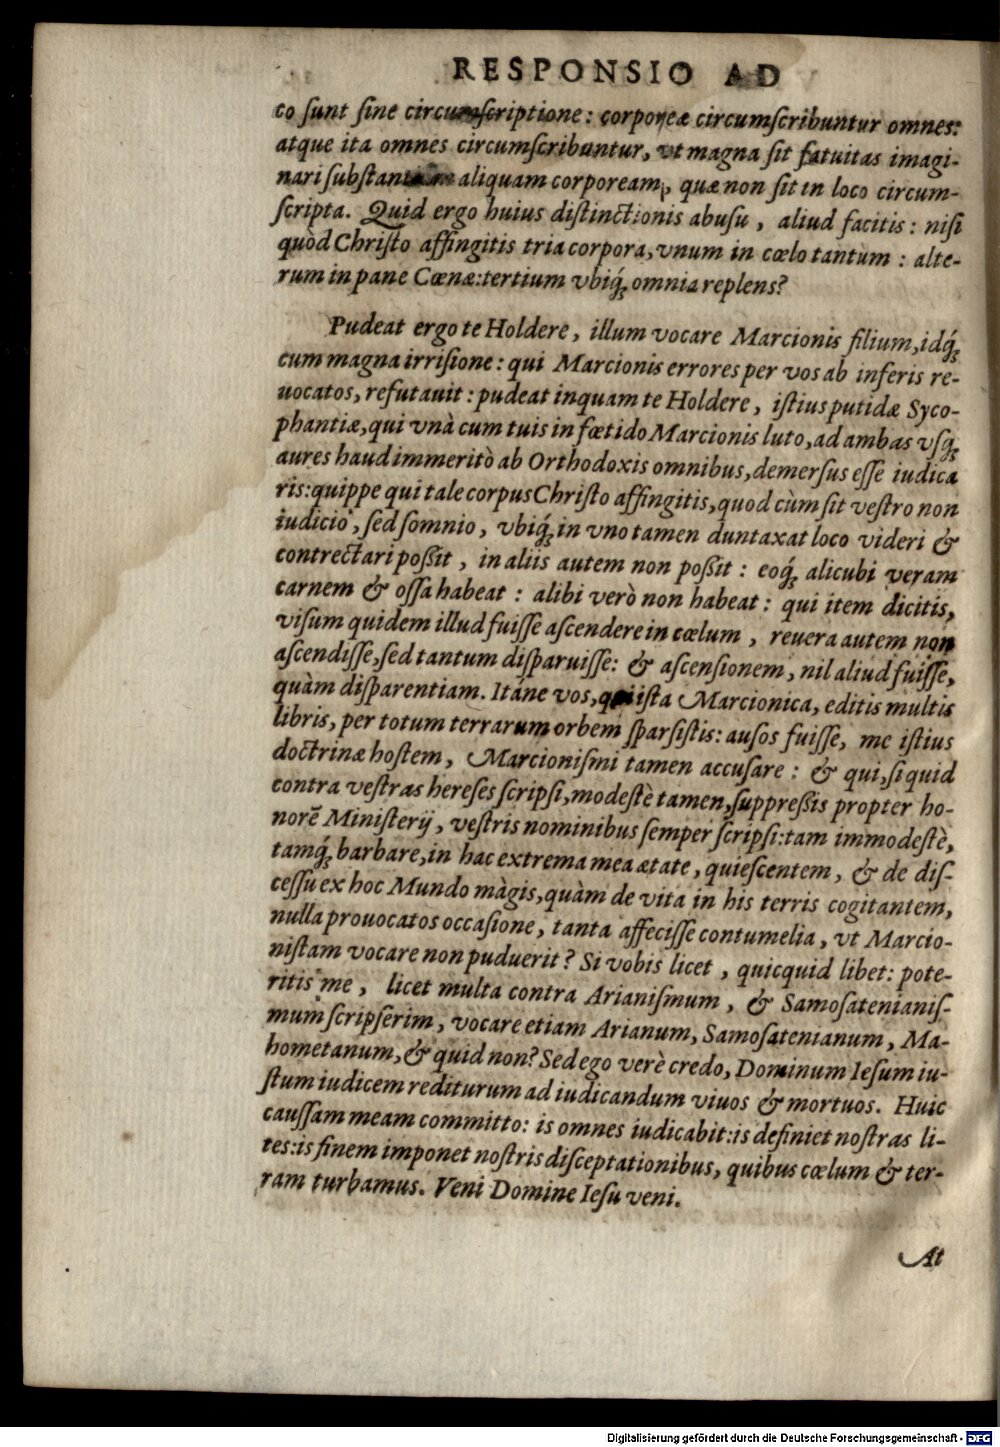 RESPONSIO AD
co sunt sine circumſcriptione: corporeæ circumſcribuntur omnes:
atque ita omnes circumſcribuntur, vt magna ſit fatuitas imagi-
nari ſubſtantiam aliquam corpoream, quæ non ſit in loco circum-
ſcripta. Quid ergo huius diſtinctionis abuſu, aliud facitis: niſi
quòd Chriſto affingitis tria corpora, vnum in cœlo tantùm: alte-
rum in pane Cœnæ: tertium vbiq́; omnia replens?
Pudeat ergo te Holdere, illum vocare Marcionis filium, idq́;
cum magna irriſione: qui Marcionis errores per vos ab inferis re-
uocatos, refutauit: pudeat inquam te Holdere, iſtius putidæ Syco-
phantiæ, qui vnà cum tuis in fœtido Marcionis luto, ad ambas vſq́;
aures haud immeritò ab Orthodoxis omnibus, demerſus eſſe iudica
ris: quippe qui tale corpus Chriſto affingitis, quod cùm ſit veſtro non
iudicio, ſed ſomnio, vbiq́; in vno tamen duntaxat loco videri &
contrectari poßit, in aliis autem non poßit: eoq́; alicubi veram
carnem & oſſa habeat: alibi verò non habeat: qui item dicitis,
viſum quidem illud fuiſſe aſcendere in cœlum, reuera autem non
aſcendiſſe, ſed tantum diſparuiſſe: & aſcenſionem, nil aliud fuiſſe,
quàm diſparentiam. Itáne vos, qui iſta Marcionica, editis multis
libris, per totum terrarum orbem ſparſiſtis: auſos fuiſſe, me iſtius
doctrinæ hoſtem, Marcioniſmi tamen accuſare: & qui, ſi quid
contra veſtras hereſes ſcripſi, modeſtè tamen, ſuppreßis propter ho-
norē Miniſterij, veſtris nominibus ſemper ſcripſi: tam immodeſtè,
tamq́; barbare, in hac extrema mea ætate, quieſcentem, & de diſ-
ceſſu ex hoc Mundo màgis, quàm de vita in his terris cogitantem,
nulla prouocatos occaſione, tanta affeciſſe contumelia, vt Marcio-
niſtam vocare non puduerit? Si vobis licet, quicquid libet: pote-
ritis me, licet multa contra Arianiſmum, & Samoſatenianiſ-
mum ſcripſerim, vocare etiam Arianum, Samoſatenianum, Ma-
hometanum, & quid non? Sed ego verè credo, Dominum Ieſum iu-
ſtum iudicem rediturum ad iudicandum viuos & mortuos. Huic
cauſſam meam committo: is omnes iudicabit: is definiet noſtras li-
tes: is finem imponet noſtris diſceptationibus, quibus cœlum & ter-
ram turbamus. Veni Domine Ieſu veni.
At
Digitalisierung gefördert durch die Deutsche Forschungsgemeinschaft - DFG